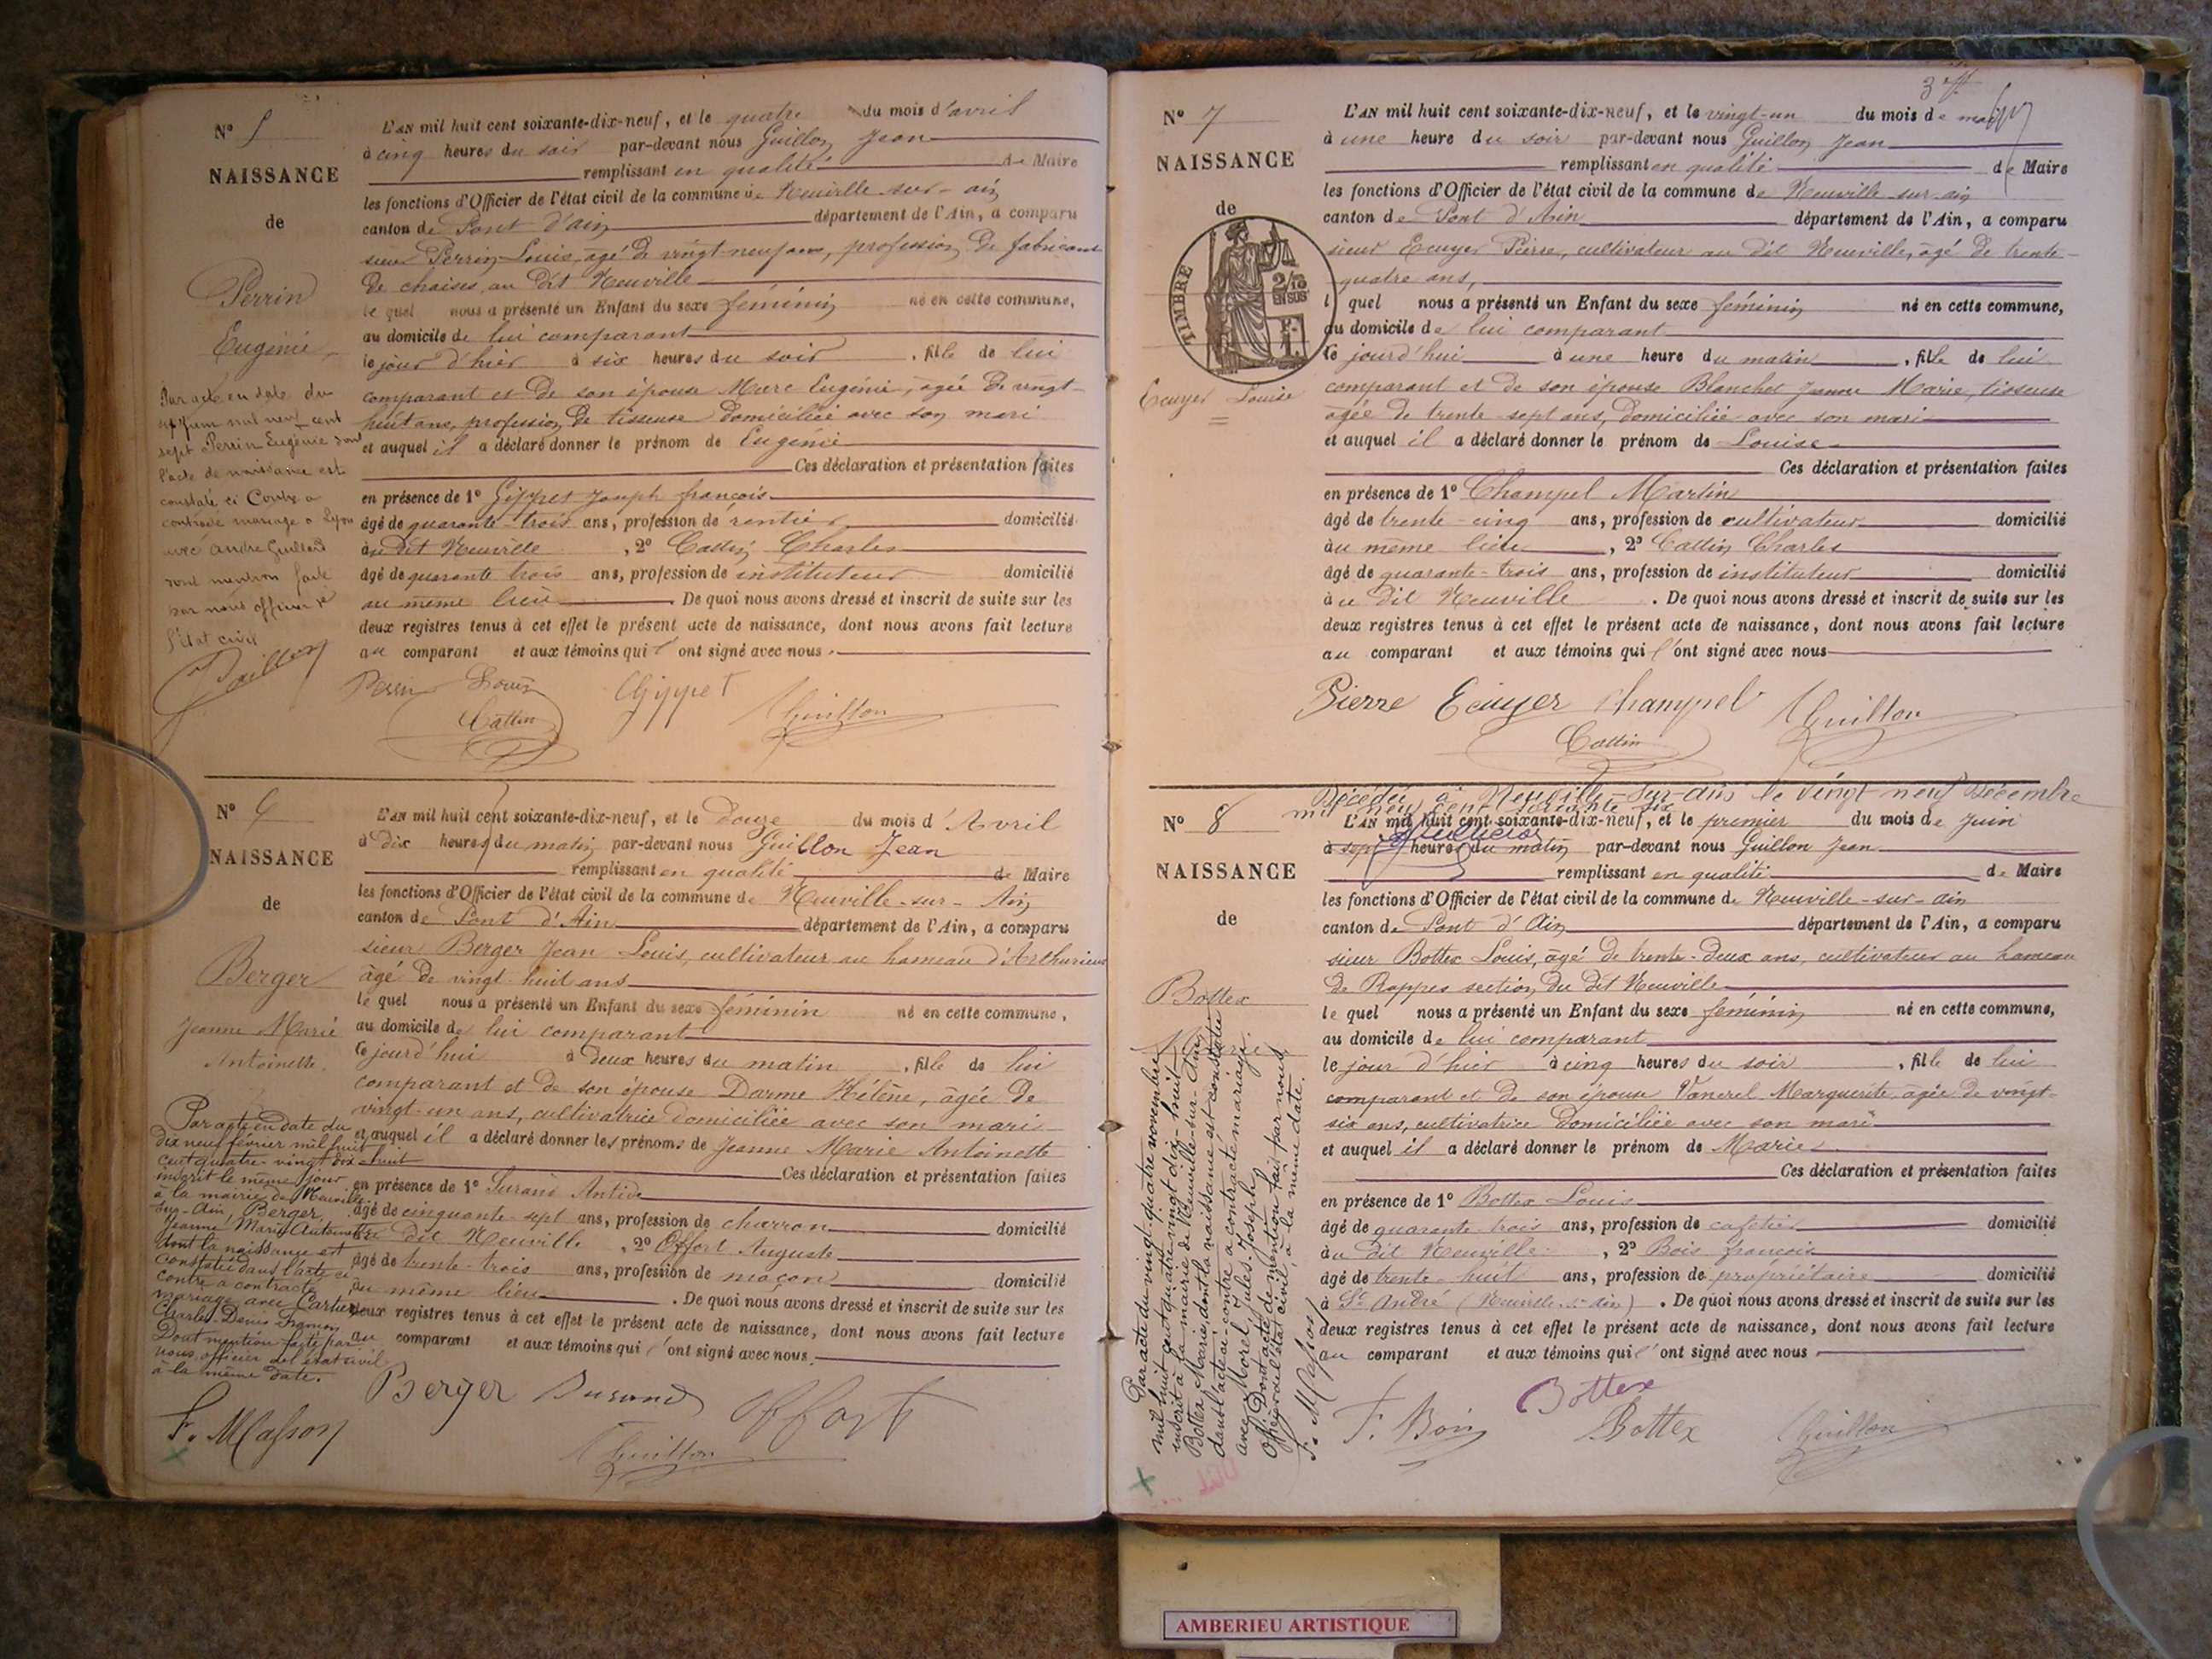 N° 5
NAISSANCE
de
Perrin
Eugénie
Par acte en date du
sept juin mil neuf cent
sept Perrin Eugénie dont
l'acte de naissance est
constaté ci Contre a
contracté mariage a Lyon
avec André Guillard
dont mention faite
par nous officier de
l'état civil
Guillon
L'AN mil huit cent soixante-dix-neuf, et le quatre du mois d'avril
à cinq heures du soir par-devant nous Guillon Jean
remplissant en qualité de Maire
les fonctions d'Officier de l'état civil de la commune de Neuville-sur-ain
canton de Pont d'ain département de l'Ain, a comparu
sieur Perrin Louis, agé de vingt-neuf ans, profession de fabricant
de chaises, au dit Neuville
le quel nous a présenté un Enfant du sexe féminin né en cette commune,
au domicile de lui comparant
le jour d'hier à six heures du soir, fille de lui
comparant et de son épouse Eugénie, agée de vingt-
huit ans, profession de tisseuse domiciliée avec son mari
et auquel il a déclaré donner le prénom de Eugénie
Ces déclaration et présentation faites
en présence de 1° Gippet Joseph françois
âgé de quarante-trois ans, profession de rentier domicilié
au dit Neuville, 2° Cattin Charles
âgé de quarante trois ans, profession de instituteur domicilié
au même lieu. De quoi nous avons dressé et inscrit de suite sur les
deux registres tenus à cet effet le présent acte de naissance, dont nous avons fait lecture
au comparant et aux témoins qui l'ont signé avec nous.
Perrin Louis Gippet Guillon
Cattin
N° 6
NAISSANCE
de
Berger
Jeanne Marie
Antoinette.
Par acte en date du
dix neuf février mil huit
cent quatre-vingt dix-huit
inscrit le même jour
à la mairie de Neuville-
sur-Ain, Berger
Jeanne Marie Antoinette
dont la naissance est
constatée dans l'acte ci
contre a contracté
mariage avec Cartier
Charles-Denis
Dont mention faite par
nous officier de l'état civil
à la même date.
F. Masson
L'AN mil huit cent soixante-dix-neuf, et le douze du mois d'Avril
à dix heures du matin par-devant nous Guillon Jean
remplissant en qualité de Maire
les fonctions d'Officier de l'état civil de la commune de Neuville-sur-Ain
canton de Pont d'Ain département de l'Ain, a comparu
sieur Berger Jean Louis, cultivateur au hameau d'Arthurieux
âgé de vingt huit ans
le quel nous a présenté un Enfant du sexe féminin né en cette commune,
au domicile de lui comparant
ce jourd'hui à deux heures du matin, fille de lui
comparant et de son épouse Darme Hélène, agée de
vingt-un ans, cultivatrice domiciliée avec son mari
et auquel il a déclaré donner les prénoms de Jeanne Marie Antoinette
Ces déclaration et présentation faites
en présence de 1° Antide
âgé de cinquante-sept ans, profession de charron domicilié
au dit Neuville, 2° Offort Auguste
âgé de trente-trois ans, profession de maçon domicilié
au même lieu. De quoi nous avons dressé et inscrit de suite sur les
deux registres tenus à cet effet le présent acte de naissance, dont nous avons fait lecture
au comparant et aux témoins qui l'ont signé avec nous.
Berger Offort
Guillon
3
N° 7
NAISSANCE
de
TIMBRE
2/10
EN SUS
Ecuyer Louise
L'AN mil huit cent soixante-dix-neuf, et le vingt-un du mois de mai
à une heure du soir par-devant nous Guillon Jean
remplissant en qualité de Maire
les fonctions d'Officier de l'état civil de la commune de Neuville-sur-ain
canton de Pont d'Ain département de l'Ain, a comparu
sieur Ecuyer Pierre, cultivateur au dit Neuville, âgé de trente-
quatre ans,
lequel nous a présenté un Enfant du sexe féminin né en cette commune,
au domicile de lui comparant
ce jourd'hui à une heure du matin, fille de lui
comparant et de son épouse Blanchet Jeanne Marie, tisseuse
agée de trente-sept ans, domiciliée avec son mari
et auquel il a déclaré donner le prénom de Louise
Ces déclaration et présentation faites
en présence de 1° Champel Martin
âgé de trente-cinq ans, profession de cultivateur domicilié
au même lieu, 2° Cattin Charles
âgé de quarante-trois ans, profession de instituteur domicilié
au dit Neuville. De quoi nous avons dressé et inscrit de suite sur les
deux registres tenus à cet effet le présent acte de naissance, dont nous avons fait lecture
au comparant et aux témoins qui l'ont signé avec nous
Pierre Ecuyer Champel Guillon
Cattin
Décédée à Neuville-sur-Ain le vingt neuf Décembre
mil neuf cent soixante six
N° 8
NAISSANCE
de
Bottex
Marie
Par acte du vingt-quatre novembre
mil huit cent quatre-vingt dix-huit
inscrit à la mairie de Neuville-sur-Ain,
Bottex Marie, dont la naissance est constatée
dans l'acte ci-contre a contracté mariage
avec Morel Jules-Joseph
Dont acte de mention fait par nous
Officier de l'état civil, à la même date.
F. Masson
L'AN mil huit cent soixante-dix-neuf, et le premier du mois de Juin
à sept heures du matin par-devant nous Guillon Jean
remplissant en qualité de Maire
les fonctions d'Officier de l'état civil de la commune de Neuville-sur-ain
canton de Pont d'Ain département de l'Ain, a comparu
sieur Bottex Louis, âgé de trente-deux ans, cultivateur au hameau
de Rappes section du dit Neuville
le quel nous a présenté un Enfant du sexe féminin né en cette commune,
au domicile de lui comparant
le jour d'hier à cinq heures du soir, fille de lui
comparant et de son épouse Vanerel Marguerite agée de vingt-
six ans, cultivatrice domiciliée avec son mari
et auquel il a déclaré donner le prénom de Marie
Ces déclaration et présentation faites
en présence de 1° Bottex Louis
âgé de quarante-trois ans, profession de cafetier domicilié
au dit Neuville, 2° Bois françois
âgé de trente-huit ans, profession de propriétaire domicilié
à St André (Neuville-s-ain). De quoi nous avons dressé et inscrit de suite sur les
deux registres tenus à cet effet le présent acte de naissance, dont nous avons fait lecture
au comparant et aux témoins qui l'ont signé avec nous
F. Bois Bottex Bottex Guillon
AMBERIEU ARTISTIQUE